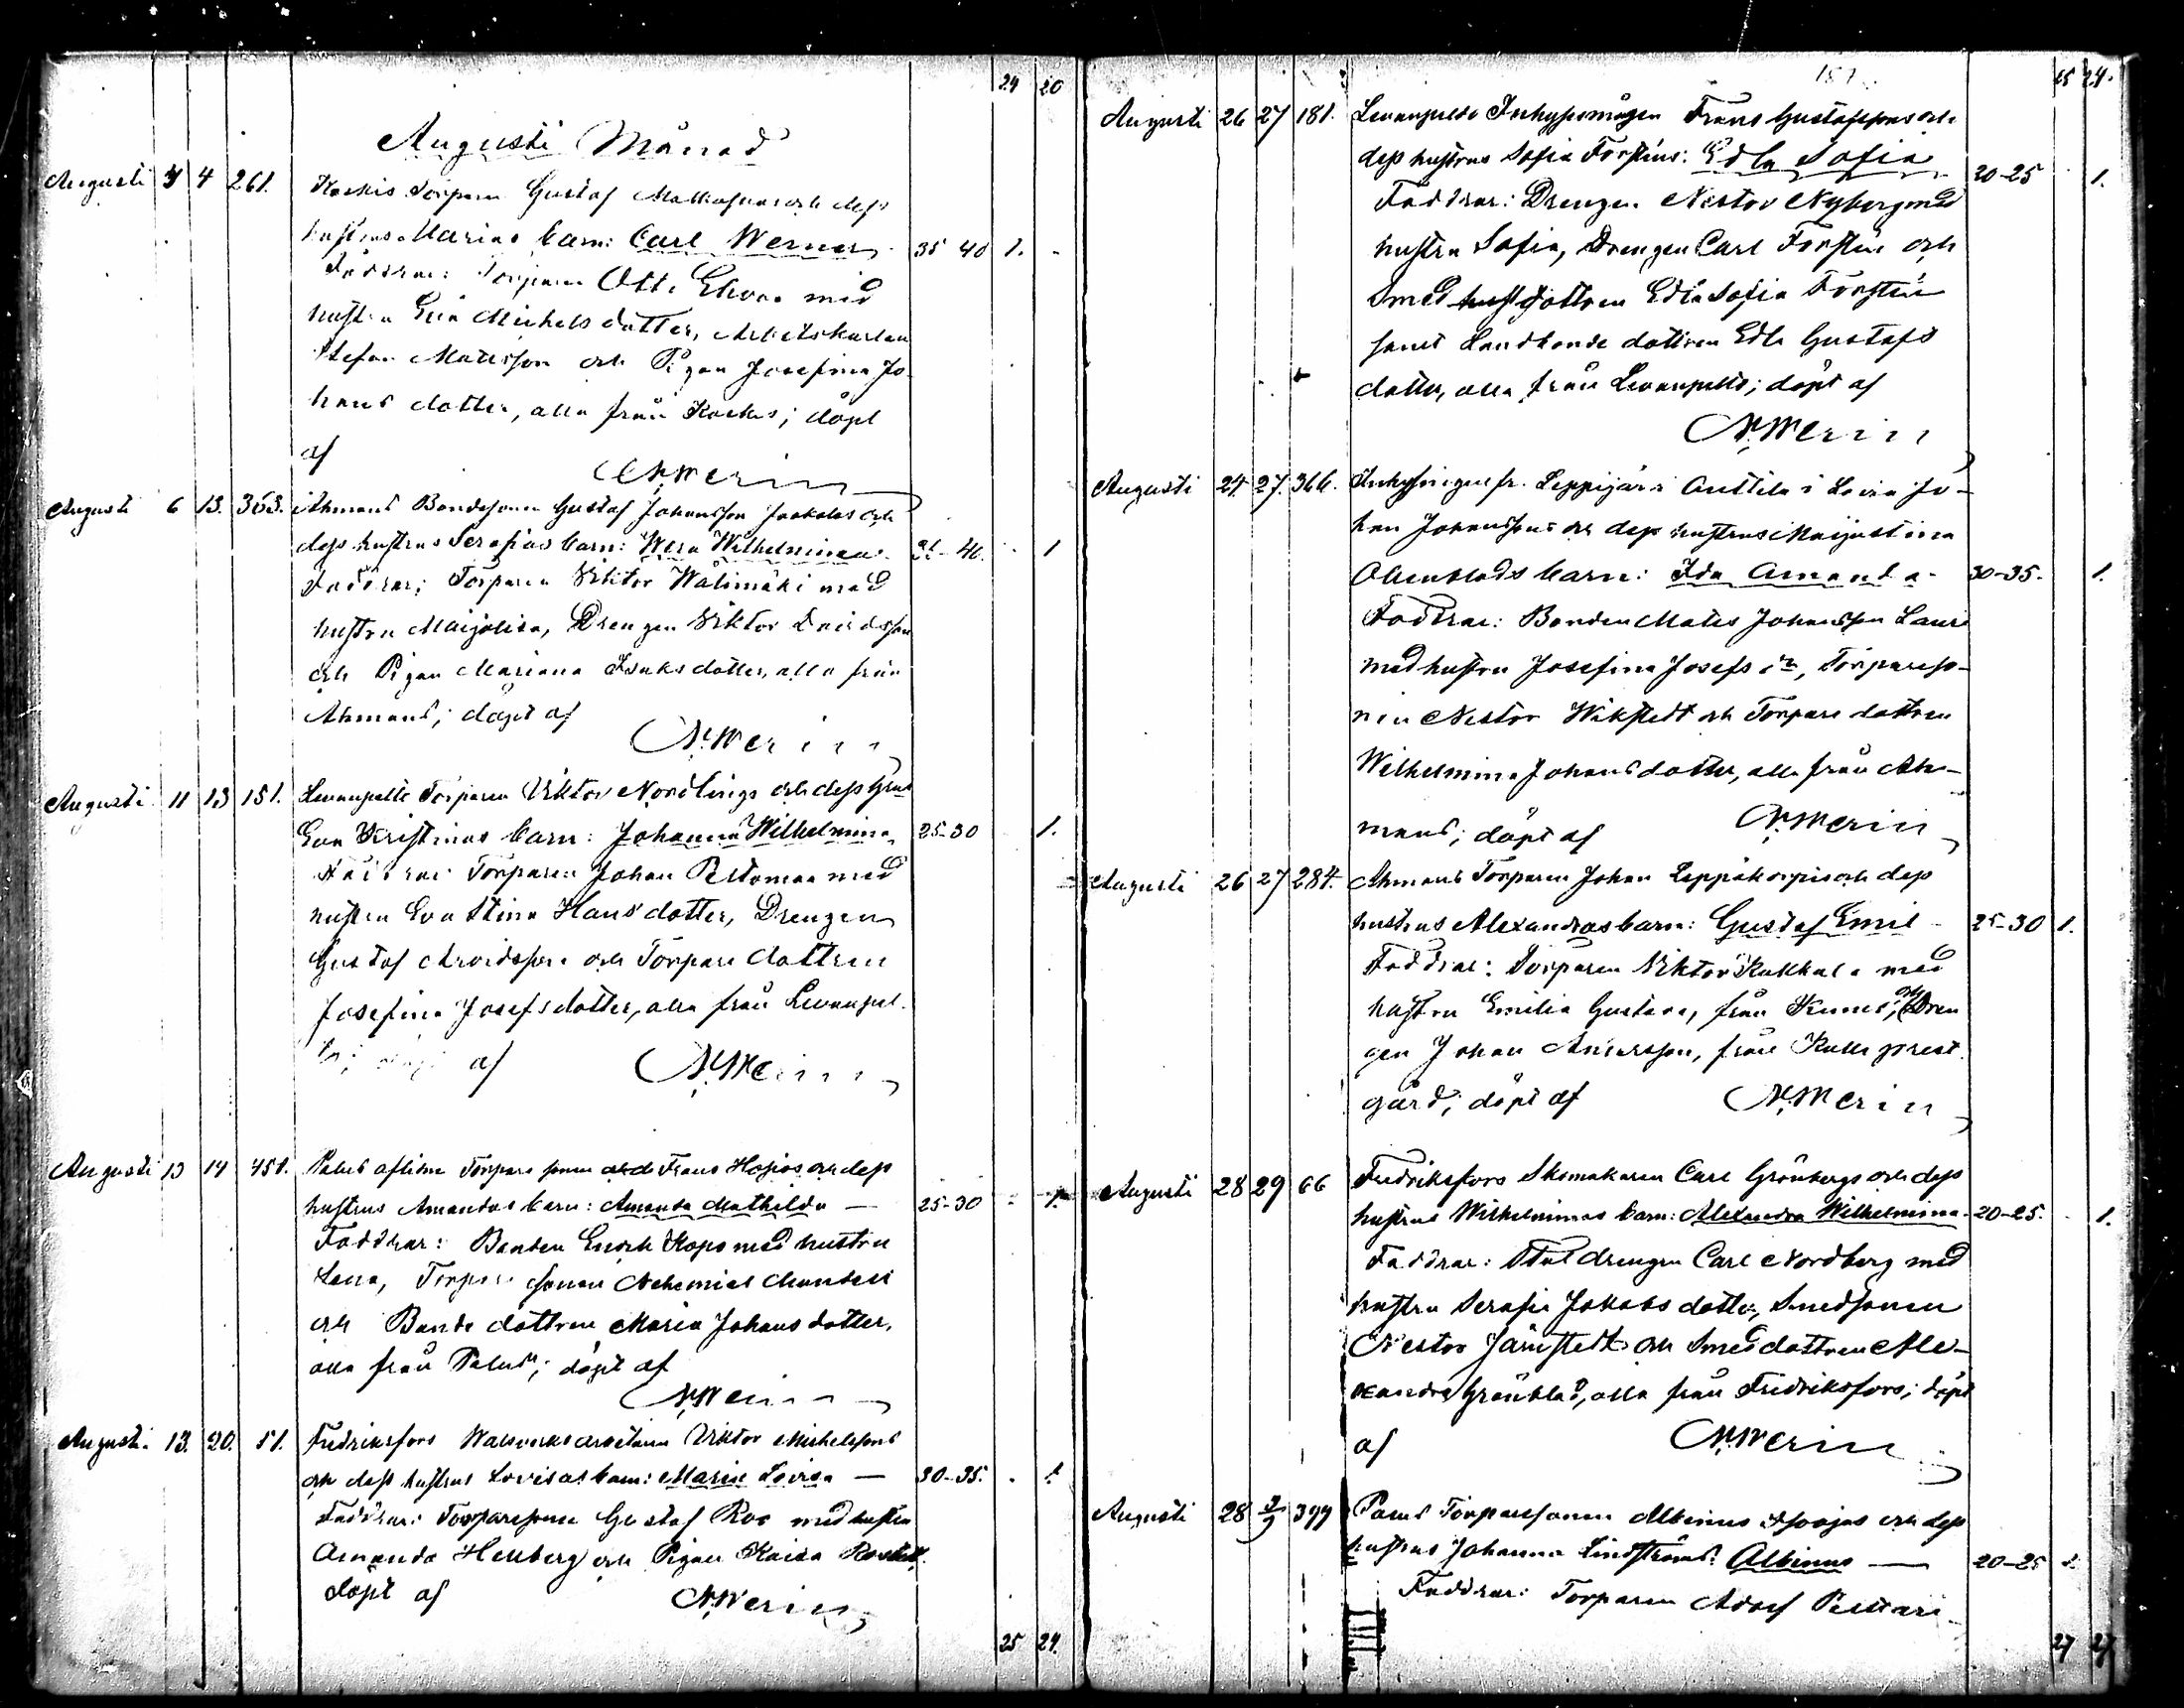 24 20
Augusti Månad
Augusti 3 4 261. Koskis Torparen Gustaf Mattssons och dess
hustrus Marias barn: Carl Werner 35 40 1. -
Faddrar: Torparen Otto Ekroos med
hustru Eva Michelsdotter, Arbetskarlen
Stefan Matsson och Pigan Josefina Jo-
hansdotter, alla från Koskis; döpt
af N. Merin
Augusti 6 13. 353. Ahmans Bondesonen Gustaf Johansson Jaakolas och
dess hustrus Serafias barn: Wera Wilhelmina - 40. 1
Faddrar: Torparen Viktor Wälimäki med
hustru Maijalisa, Drengen Viktor Davidsson
och Pigan Mariana Isaksdotter, alla från
Ahmans; döpt af
N. Merin
Augusti 11 13 151. Lewanpelto Torparen Viktor Nordlings och dess hustrus
Eva Kristinas barn: Johanna Wilhelmina 25-30 1.
Faddrar: Torparen Johan Peltomaa med
hustru Eva Stina Hansdotter, Drengen
Gustaf Arvidsson och Torpare dottren
Josefina Josefsdotter, alla från Lewanpel-
to; döpt af N. Merin
Augusti 13 14 451. Palus aflidne Torpare sonen Frans Hojsos och dess
hustrus Amandas barn: Amanda Mathilda — 25-30 - 1.
Faddrar: Bonden Enoch Kops med hustru
Lena, Torpare sonen Nehemias Mandell
och Bonde dottren Maria Johansdotter,
alla från Palus; döpt af
N. Merin
Augusti 13. 20. 51. Fredriksfors Walsverksarbetaren Viktor Michelssons
och dess hustrus Lovisas barn: Maria Lovisa — 30-35. . 1.
Faddrar: Torparesonen Gustaf Roo med hustru
Amanda Hellberg och Pigan Kaisa
döpt af N. Merin
25 24.
157 25 24.
Augusti 26 27 181. Lewanpelto Inhysesmågen Frans Gustafssons och
dess hustrus Sofia Forsténs: Edla Sofia 20-25 1.
Faddrar: Drengen Nestor Nyberg med
hustru Sofia, Drengen Carl Forstén och
Smed dottren Edla Sofia Forstén
samt Landbonde dottren Edla Gustafs
dotter, alla från Lewanpelto; döpt af
N. Merin
Augusti 24. 27. 366. Inhysingen fr. Leppijärvi Anttila i Lavia Jo-
han Johanssons och dess hustrus Maijastina
Ahlblads barn: Ida Amanda - 30-35. 1.
Faddrar: Bonden Mats Johansson Lauri
med hustru Josefina Josefs dr, Torpareso-
nen Nestor Wikstedt och Torpare dottren
Wilhelmina Johansdotter, alla från Ah-
mans; döpt af N. Merin
Augusti 26 27 284. Ahmans Torparen Johan Leppäkorpis och dess
hustrus Alexandras barn: Gustaf Emil 25-30 1.
Faddrar: Torparen Viktor Kukkala med
hustru Emilia Gustava, från Kunns, och Dren
gen Johan Andersson, från Kulla prest
gård; döpt af N. Merin
Augusti 28 29 66 Fredriksfors Skomakaren Carl Grönbergs och dess
hustrus Wilhelminas barn: Alexandra Wilhelmina - 20-25. 1.
Faddrar: Stall drengen Carl Nordberg med
hustru Serafia Jakobs dotter, Smedsonen
Nestor Järnstedt och Smed dottren Ale-
xandra Grönblad, alla från Fredriksfors; döpt
af N. Merin
Augusti 28 2/9 399 Palus Torparesonen Albinus och dess
hustrus Johanna Lindströms: Albinus — 20-25 1.
Faddrar: Torparen Adolf
27 27